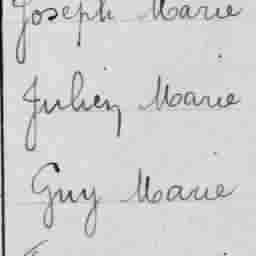 Joseph Marie
Julien Marie
Guy Marie